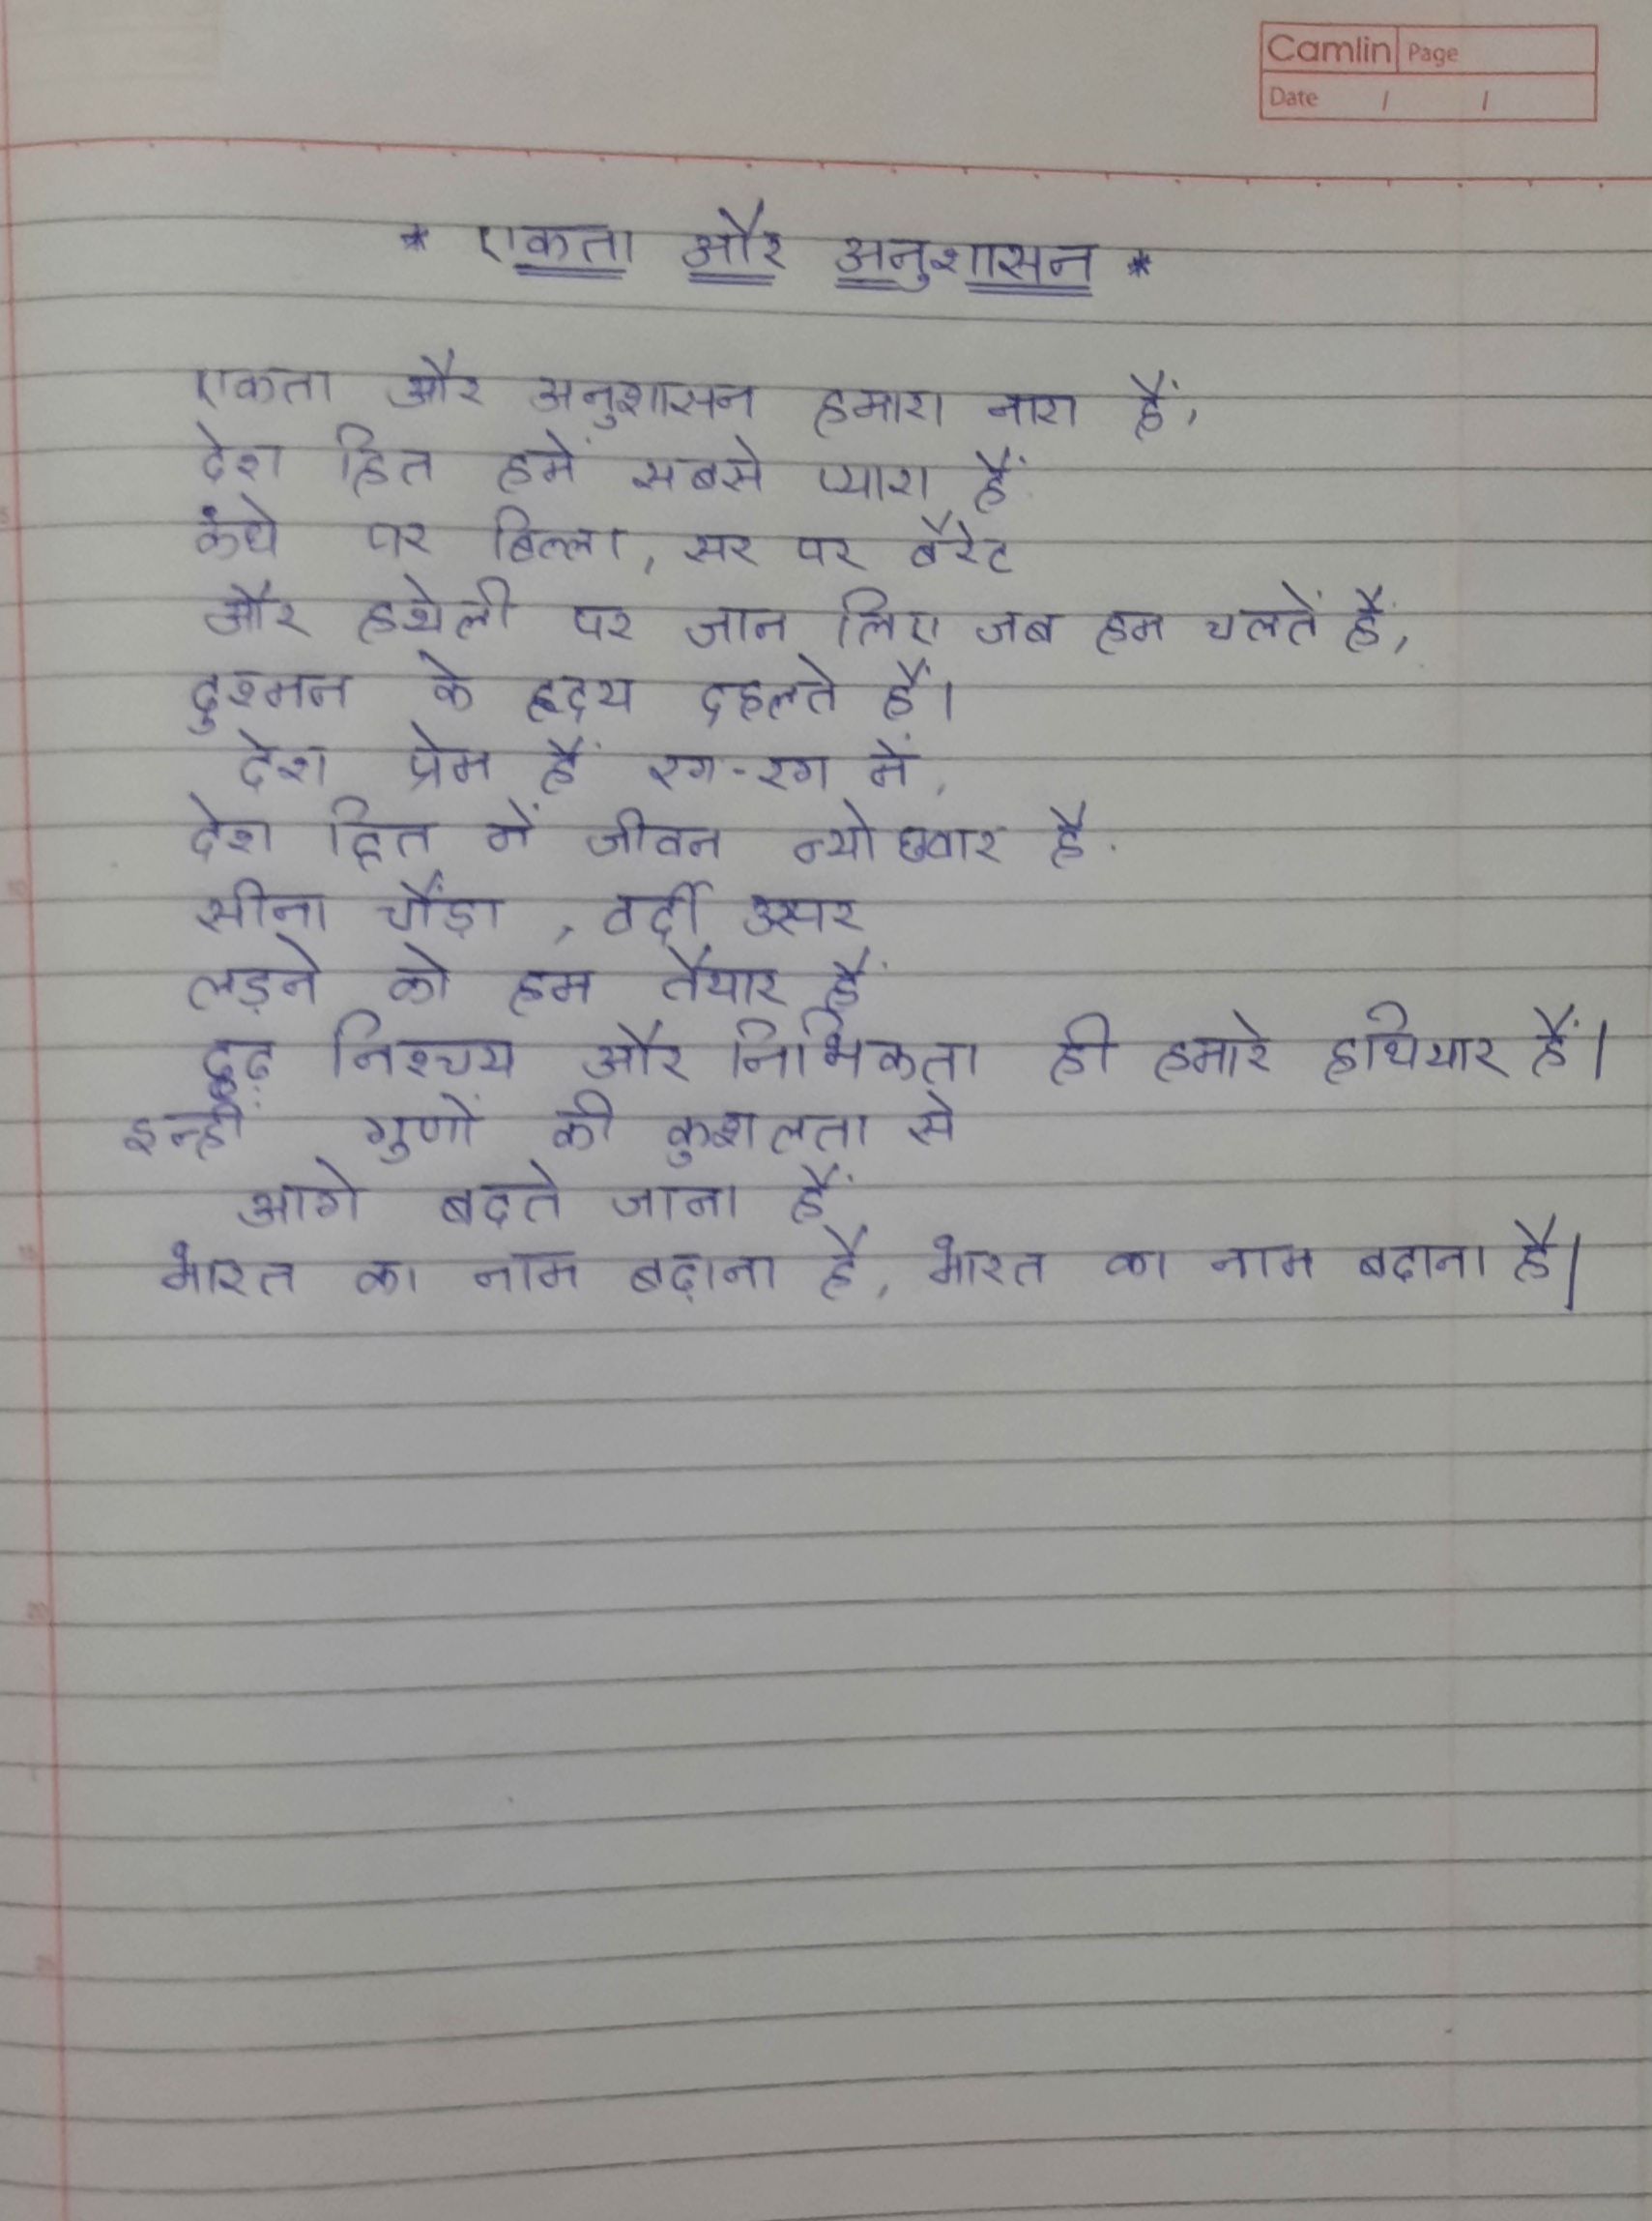 Camlin Page
Date / /
* एकता और अनुशासन *
एकता और अनुशासन हमारा नारा हैं,
देश हित हमें सबसे प्यारा हैं
कंधे पर बिल्ला, सर पर बैरेट
और हथेली पर जान लिए जब हम चलतें हैं,
दुश्मन के हृदय दहलते हैं।
देश प्रेम हैं रग-रग में,
देश हित में जीवन न्योछवार है.
सीना चौंड़ा, वर्दी उस्पर
लड़ने को हम तैयार हैं
दृढ़ निश्चय और निर्भिकता ही हमारे हथियार हैं।
इन्हीं गुणों की कुशलता से
आगे बढ़ते जाना हैं
भारत का नाम बढ़ाना है, भारत का नाम बढाना है।